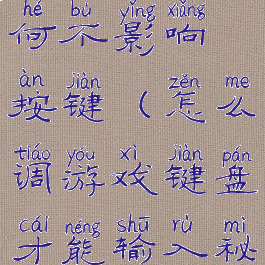 hé bù yǐng xiǎng
何不影响
àn jiàn zěn me
按键(怎么
tiáo yóu xì jiàn pán
调游戏键盘
cái néng shū rù mì
才能输入秘